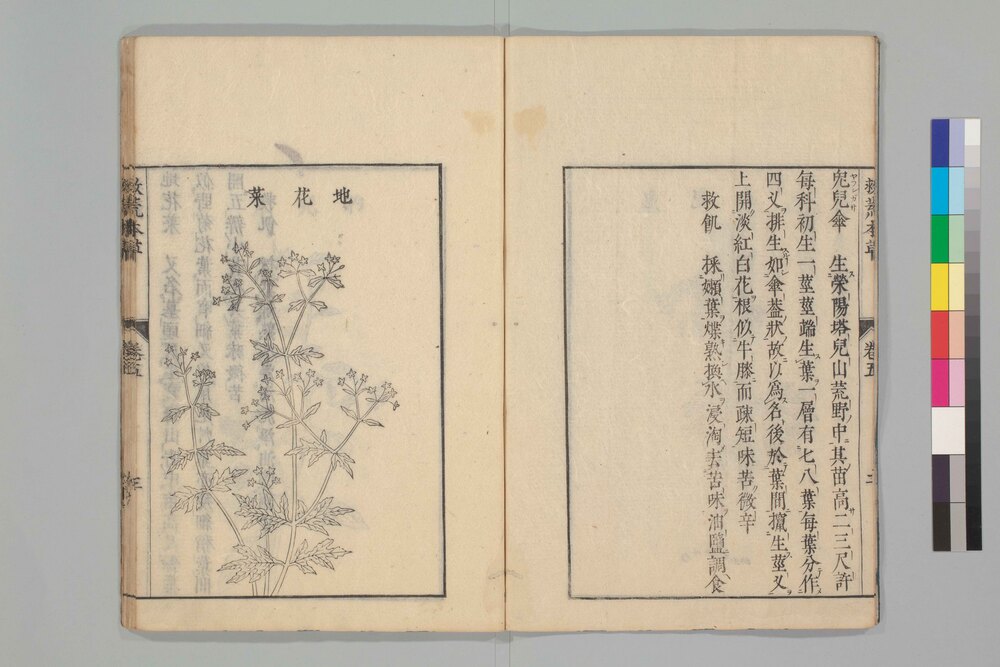 救荒本草 卷五 二
兜兒傘 生滎陽塔兒山荒野中其苗高二三尺許
ヤブレガサ
每科初生一莖莖端生葉一層有七八葉每葉分作
四叉排生如傘蓋狀故以為名後於葉間攛生莖叉
上開淡紅白花根似牛膝而疎短味苦微辛
救飢 採嫩葉煠熟換水浸淘去苦味油鹽調食
地花菜
救荒本草 卷之五